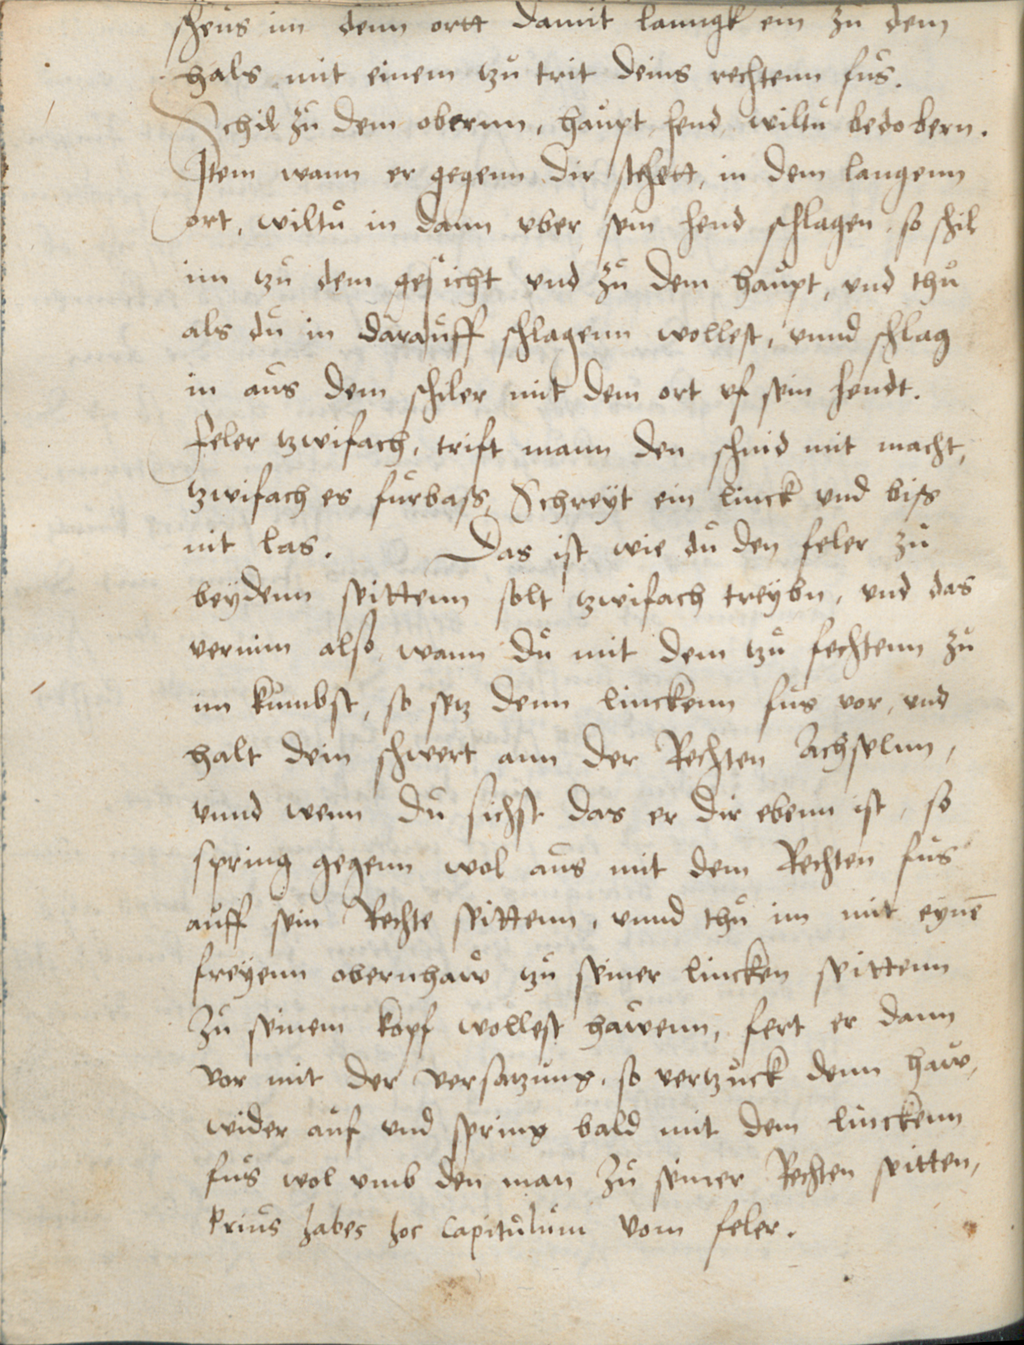 scheus im denn ortt damit lanngk ein zu dem
hals mit einem tzu trit deins rechtenn fus.
Schil zu dem obernn, haupt hend wiltu bedobern.
Item wann er gegenn dir stehett, in dem langenn
ort, wiltu in dann vber sein hend schlagen so schil
im tzu dem gesicht vnd zu dem haupt, vnd thu
als du in darauff schlagenn wollest, vnnd schlag
in aus dem schiler mit dem ort vf sein hendt.
Feler tzwifach, trift mann den schnid mit macht,
tzwifach es furbass, Schreyt ein linck vnd biss
nit las. Das ist wie du den feler zu
beydenn seittenn solt tzwifach treybn, vnd das
vernim also wann du mit dem tzu fechtenn zu
im kumbst, so setz denn linckenn fus vor, vnd
halt dein schwert ann der Rechten Achselnn,
vnnd wenn du sichst das er dir ebenn ist, so
spring gegenn wol aus mit dem Rechten fus
auff sein Rechte seittenn, vnnd thu im mit eynē
freyenn obernhaw tzu seiner lincken seittenn
Zu seinem kopf wollest hawenn, fert er dann
vor mit der versatzung, so vertzuck denn haw,
wider auf vnd spring bald mit dem linckenn
fus wol vmb den man zu seiner Rechten seitten,
Prius habes hoc Capitulum vom feler.